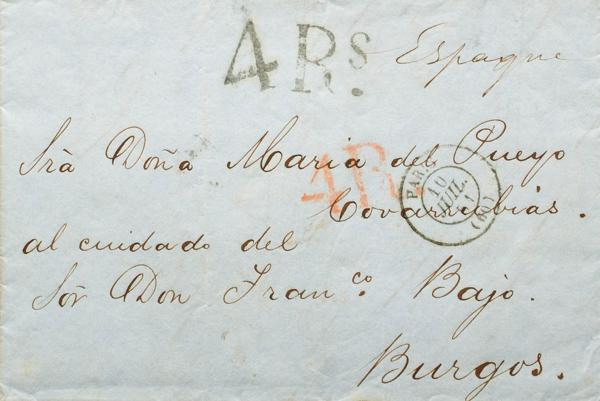 4 Rs.
Espagne
Sra Doña Maria del Pueyo
4R
PAR
10
JUIL.
51
(60)
Covarrubias.
al cuidado del
Sor Don Franco. Bajo.
Burgos.